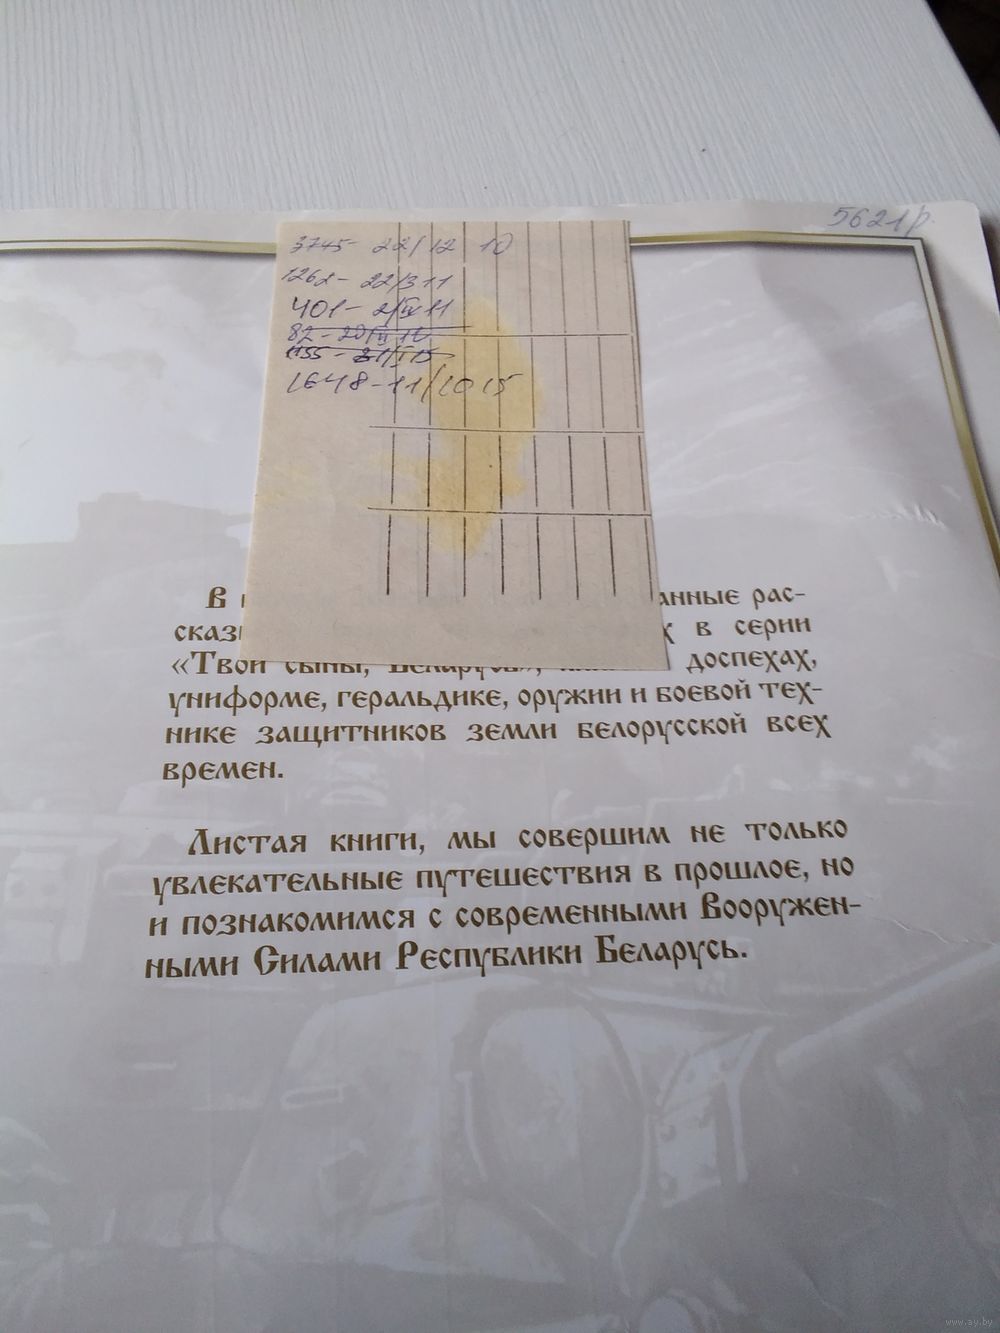 5621р.
3745- 22/12 10
1262- 22/3 11
401- 2/IV 11
82-20/III 12
1648-11/10 15
В анные рас-
сказ х в серии
«Твои сыны, Беларусь», доспехах,
униформе, геральдике, оружии и боевой тех-
нике защитников земли белорусской всех
времен.
Листая книги, мы совершим не только
увлекательные путешествия в прошлое, но
и познакомимся с современными Вооружен-
ными Силами Республики Беларусь.
www.ay.by